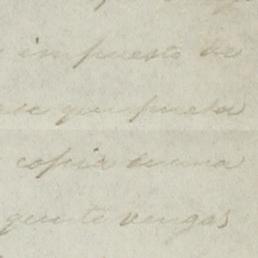 impuesto de
que pueda
copia buena
que te vengas